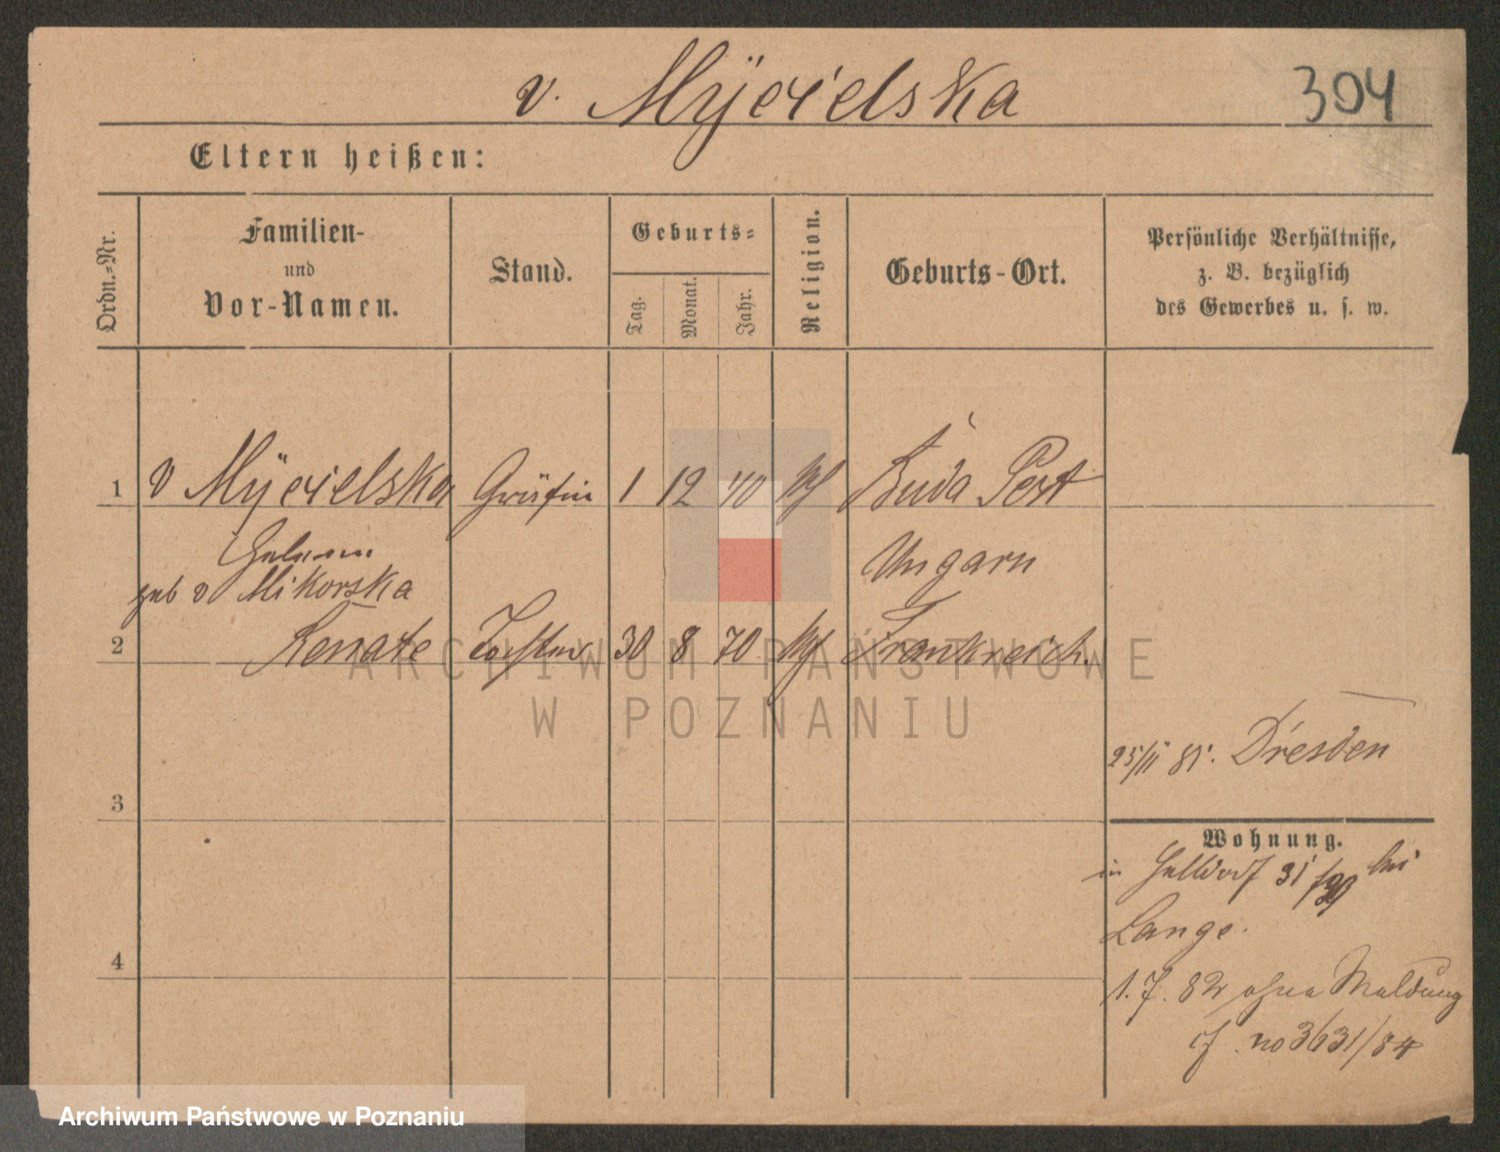 v. Mÿcielska 304
Eltern heißen:
Ordn.=Nr.
Familien-
und
Vor-Namen.
Stand.
Geburts=
Tag.
Monat.
Jahr.
Religion.
Geburts-Ort.
Persönliche Verhältnisse,
z. B. bezüglich
des Gewerbes u. s. w.
1 v Mÿcielska Gräfin 1 12 40 Buda Pest
geb v Mikorska Ungarn
2 Renate Tochter 30 8 70 Frankreich.
25/11 81. Dresden
3
Wohnung.
in 31 bei
Lange.
4
1. 7. 82 ohne Meldung
cf. no 3631/84
ARCHIWUM PAŃSTWOWE
W POZNANIU
Archiwum Państwowe w Poznaniu